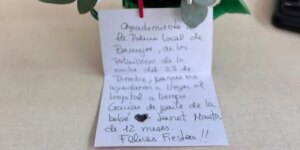 Agradecimiento
la Policia Local de
de los
Patrulleros de la
noche del 23 de
que me
ayudaron a llegar al
hospital a tiempo.
Gracias de parte de la
bebe Janet
de 12 meses.
Felices Fiestas!!